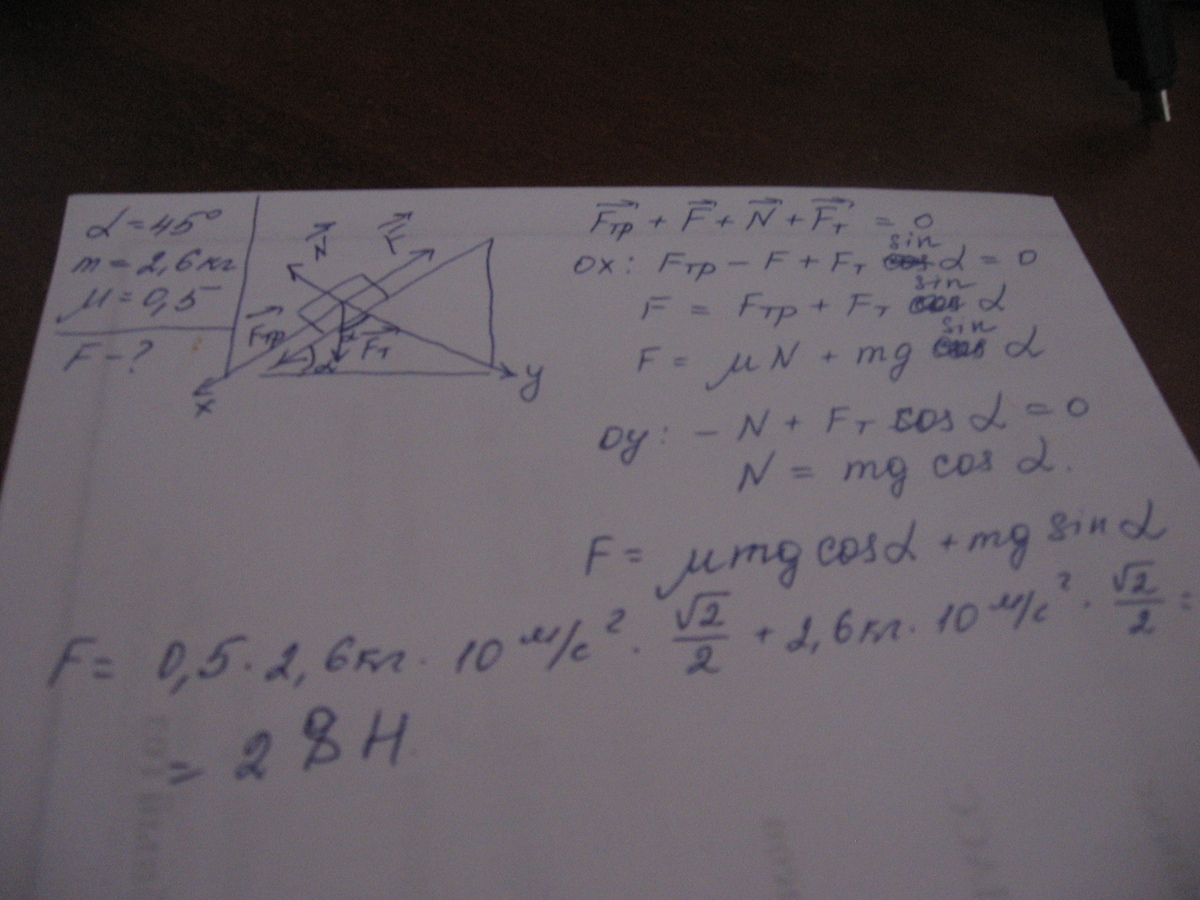 α = 45°
m = 2,6 кг
μ = 0,5
F - ?
N F
Fтр Fт
α α
x y
Fтр + F + N + Fт = 0
OX: Fтр - F + Fт sin α = 0
F = Fтр + Fт sin α
F = μN + mg sin α
OY: - N + Fт cos α = 0
N = mg cos α.
F = μmg cosα + mg sin α
F = 0,5 · 2,6 кг · 10 м/с² · √2/2 + 2,6 кг · 10 м/с² · √2/2 =
= 28 Н